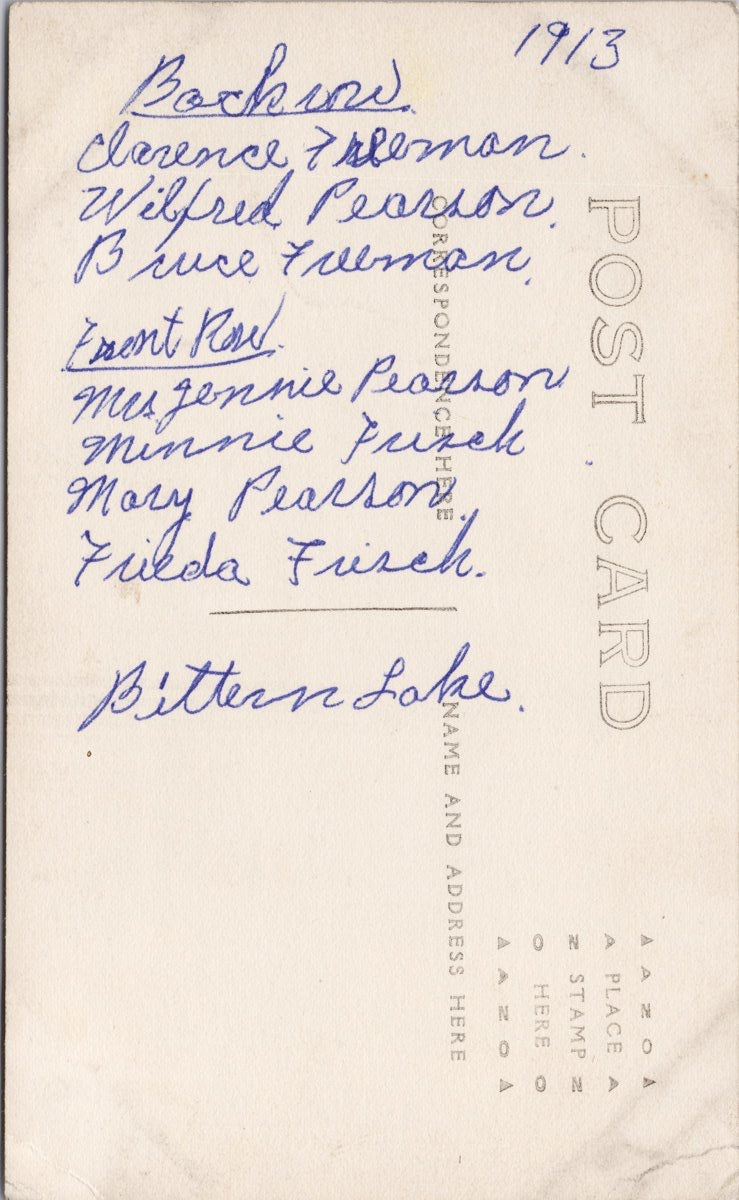 1913
Back row.
Clarence Freeman.
Wilfred Pearson.
Bruce Freeman.
Front Row.
Mrs Jennie Pearson
Minnie Frisch.
Mary Pearson.
Frieda Frisch.
Bittern Lake.
POST CARD
CORRESPONDENCE HERE
NAME AND ADDRESS HERE
▲ A N O ▲
A PLACE A
N STAMP N
O HERE O
▲ A N O ▲